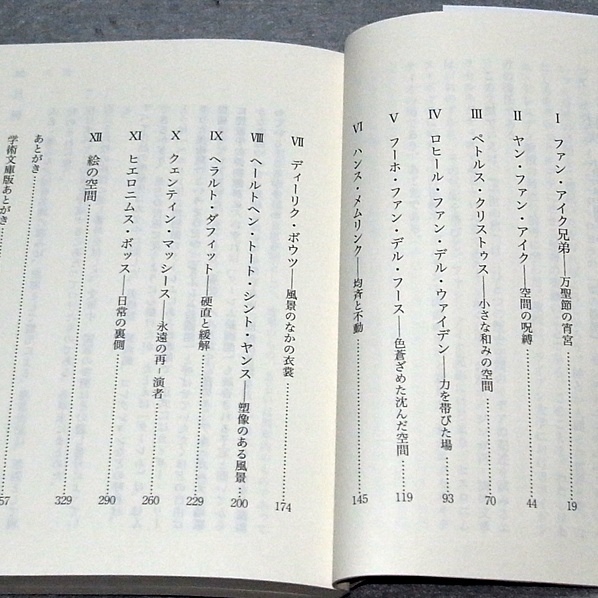 Ⅰ ファン・アイク兄弟――万聖節の宵宮……19
Ⅱ ヤン・ファン・アイク――空間の呪縛……44
Ⅲ ペトルス・クリストゥス――小さな和みの空間……70
Ⅳ ロヒール・ファン・デル・ウァイデン――力を帯びた場……93
Ⅴ フーホ・ファン・デル・フース――色蒼ざめた沈んだ空間……119
Ⅵ ハンス・メムリンク――均斉と不動……145
Ⅶ ディーリク・ボウツ――風景のなかの衣裳……174
Ⅷ ヘールトヘン・トート・シント・ヤンス――塑像のある風景……200
Ⅸ ヘラルト・ダフィット――硬直と緩解……229
Ⅹ クェンティン・マッシース――永遠の再=演者……260
Ⅺ ヒエロニムス・ボッス――日常の裏側……290
Ⅻ 絵の空間……329
あとがき……
学術文庫版あとがき……57